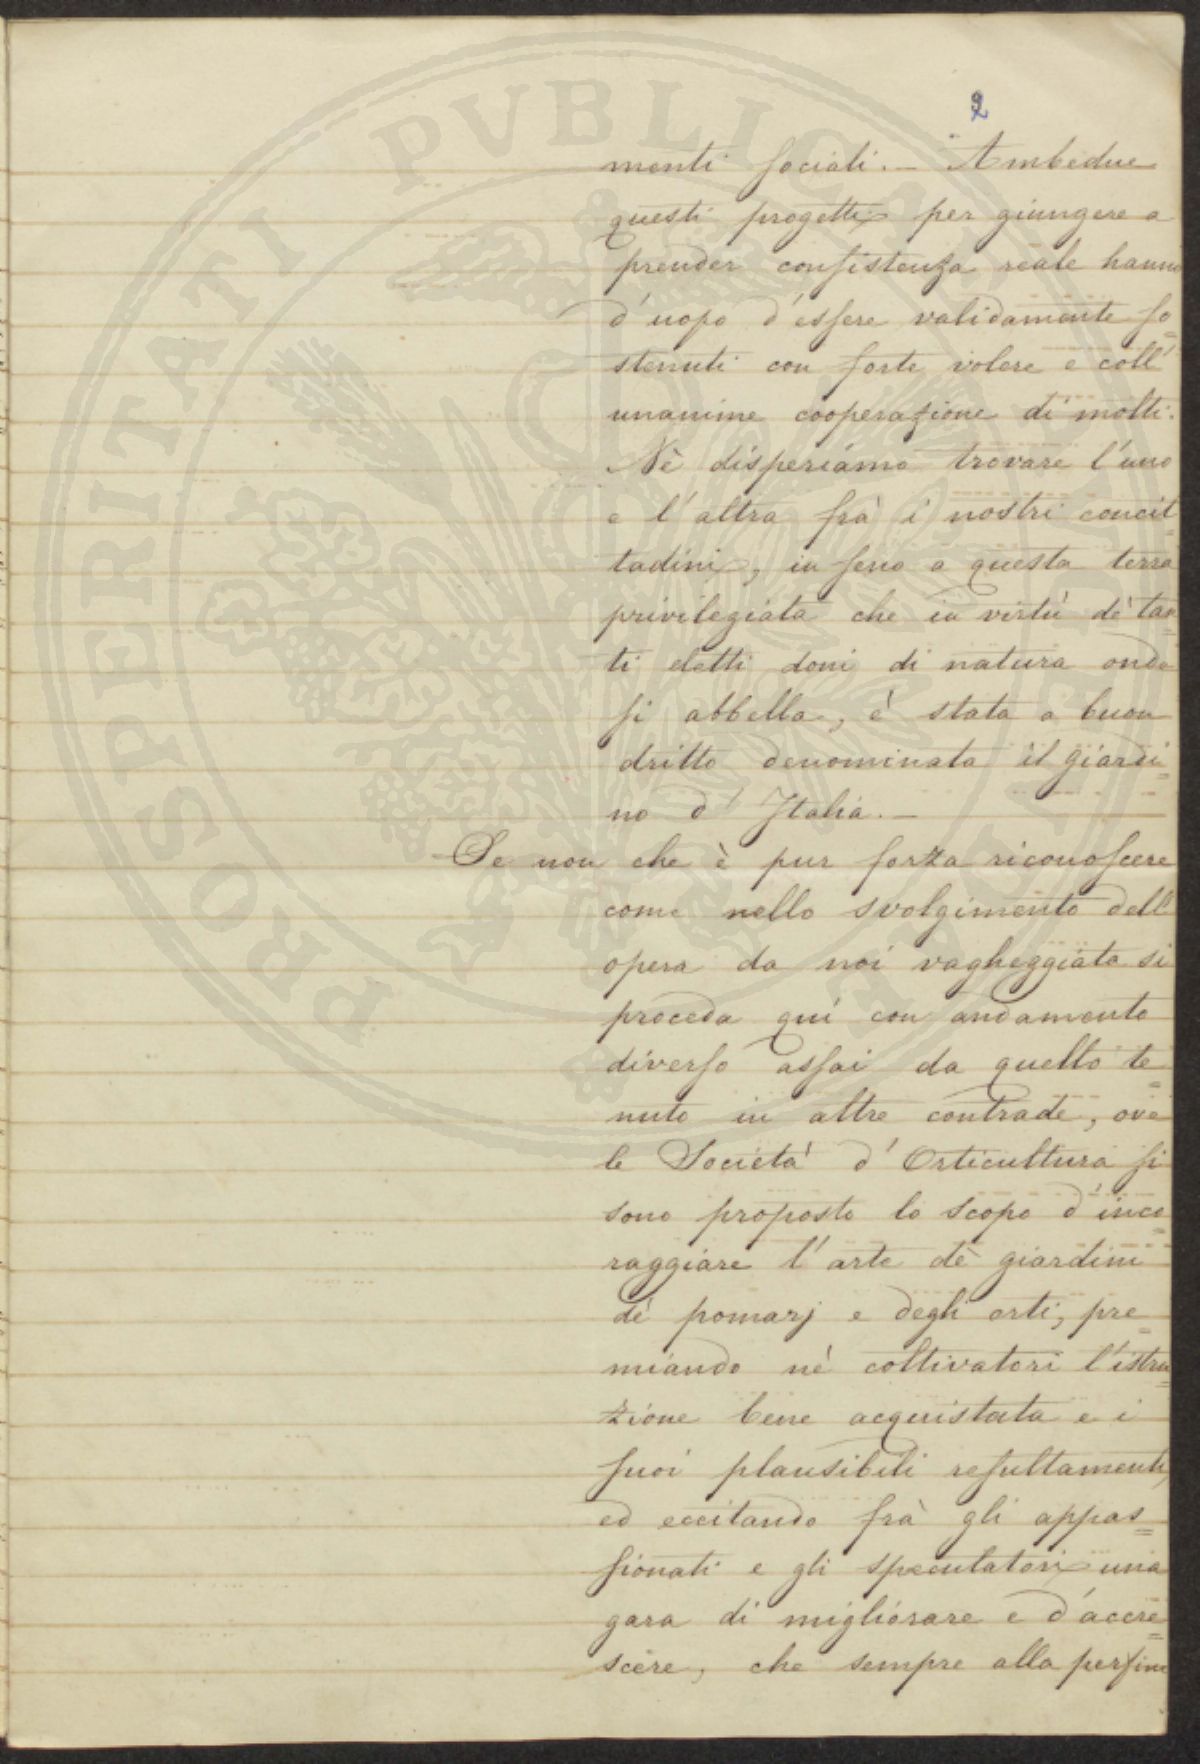 2
menti sociali. — Ambedue
questi progetti per giungere a
prender consistenza reale hanno
d'uopo d'essere validamente so=
stenuti con forte volere e coll'
unanime cooperazione di molti.
Nè disperiamo trovare l'uno
e l'altra frà i nostri concit=
tadini, in seno a questa terra
privilegiata che in virtù dè tan=
ti eletti doni di natura onde
si abbella, è stata a buon
dritto denominata il giardi=
no d'Italia. —
Se non che è pur forza riconoscere
come nello svolgimento dell'
opera da noi vagheggiata si
proceda quì con andamento
diverso assai da quello te=
nuto in altre contrade, ove
le Società d'Orticultura si
sono proposte lo scopo d'inco=
raggiare l'arte dè giardini
dè pomarj e degli orti, pre=
miando nè coltivatori l'istru=
zione bene acquistata e i
suoi plausibili resultamenti,
ed eccitando frà gli appas=
sionati e gli speculatori una
gara di migliorare e d'accre=
scere, che sempre alla perfine
PROSPERITATI PVBLICAE